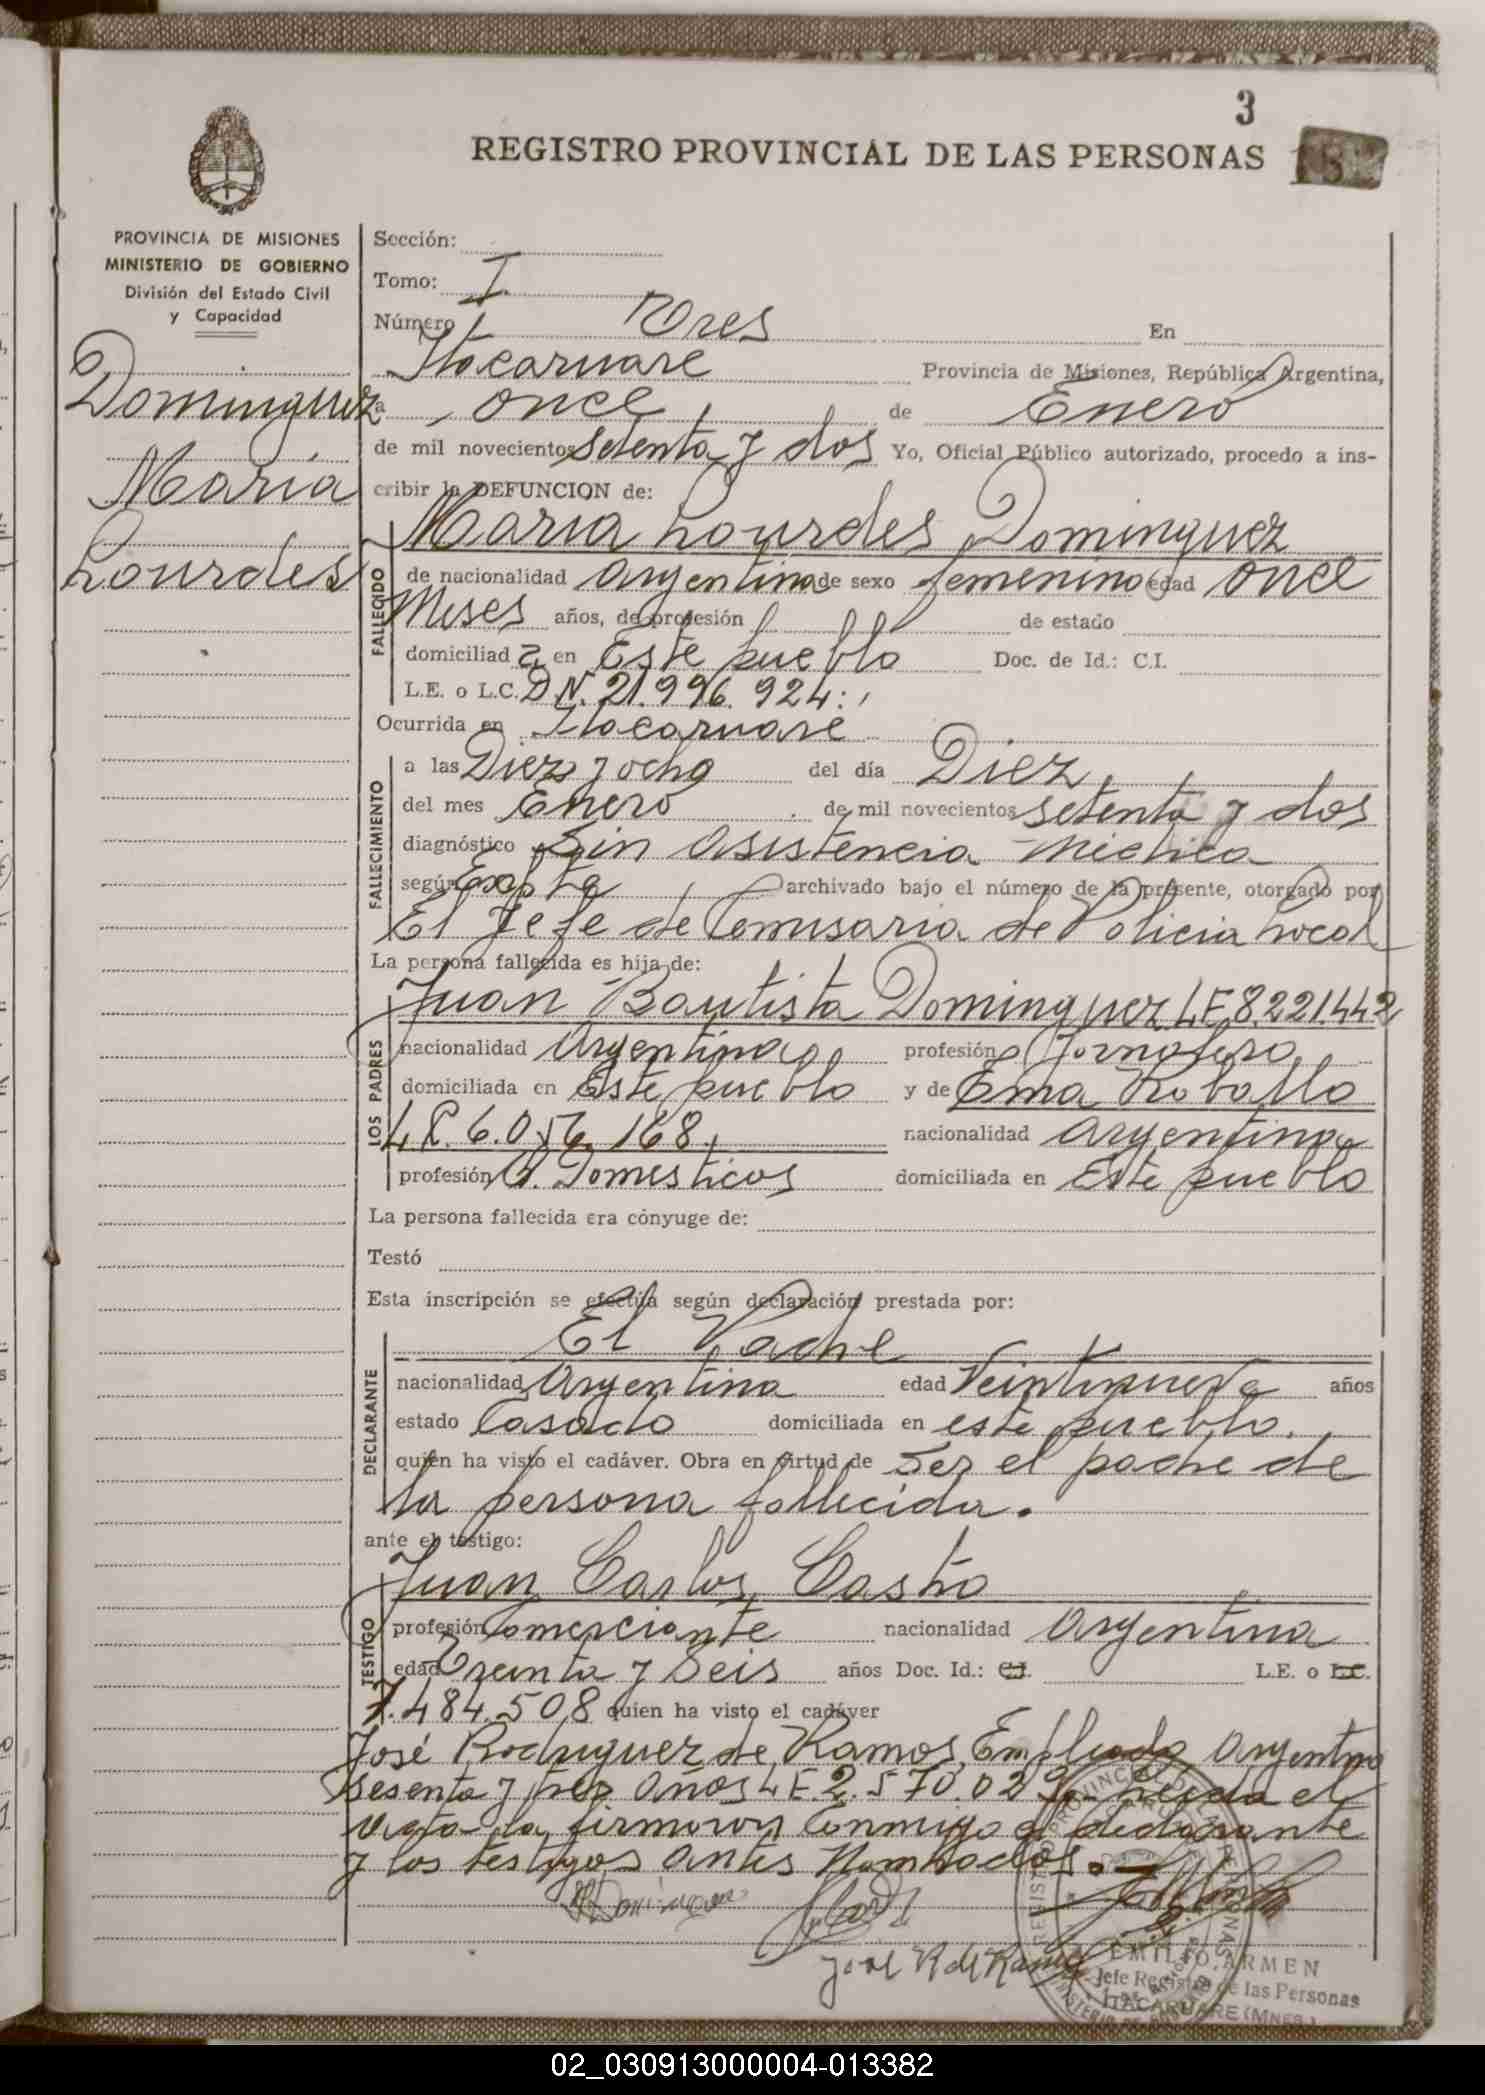 3
REGISTRO PROVINCIAL DE LAS PERSONAS
PROVINCIA DE MISIONES
MINISTERIO DE GOBIERNO
División del Estado Civil
y Capacidad
Dominguez
Maria
Lourdes
Sección:
Tomo: I
Número Tres En
Itacaruare Provincia de Misiones, República Argentina,
a once de Enero
de mil novecientos setenta y dos Yo, Oficial Público autorizado, procedo a ins-
cribir la DEFUNCION de:
Maria Lourdes Dominguez
FALLECIDO
de nacionalidad argentina de sexo femenino edad once
Meses años, de profesión de estado
domiciliad a en Este pueblo Doc. de Id.: C.I.
L.E. o L.C. D N. 21.996.924:
Ocurrida en Itacaruare
FALLECIMIENTO
a las Diez y ocho del día Diez
del mes Enero de mil novecientos setenta y dos
diagnóstico Sin asistencia Medica
según archivado bajo el número de la presente, otorgado por
El Jefe de Comisaria de Policia Local
La persona fallecida es hija de:
Juan Bautista Dominguez L.E 8.221.442
LOS PADRES
nacionalidad Argentina profesión Jornalero
domiciliada en Este pueblo y de Ema Roballo
nacionalidad argentina
profesión Q. Domesticos domiciliada en Este pueblo
La persona fallecida era cónyuge de:
Testó
Esta inscripción se efectúa según declaración prestada por:
El Padre
DECLARANTE
nacionalidad Argentina edad Veintinueve años
estado Casado domiciliada en este pueblo.
quien ha visto el cadáver. Obra en virtud de Ser el padre de
la persona fallecida.
ante el testigo:
Juan Carlos Castro
TESTIGO
profesión Comerciante nacionalidad Argentina
edad Treinta y Seis años Doc. Id.: C.I. L.E. o L.C.
7.484.508 quien ha visto el cadáver
José Rodriguez de Ramos, Empleado argentino
sesenta y tres años L E. 2.570.029 Leida el
acta la firmaron Conmigo el declarante
y los testigos antes Nombrados.
Dominguez
José R de Ramos
EMILIO ARMEN
Jefe Registro de las Personas
ITACARUARE (MNES.)
02_030913000004-013382